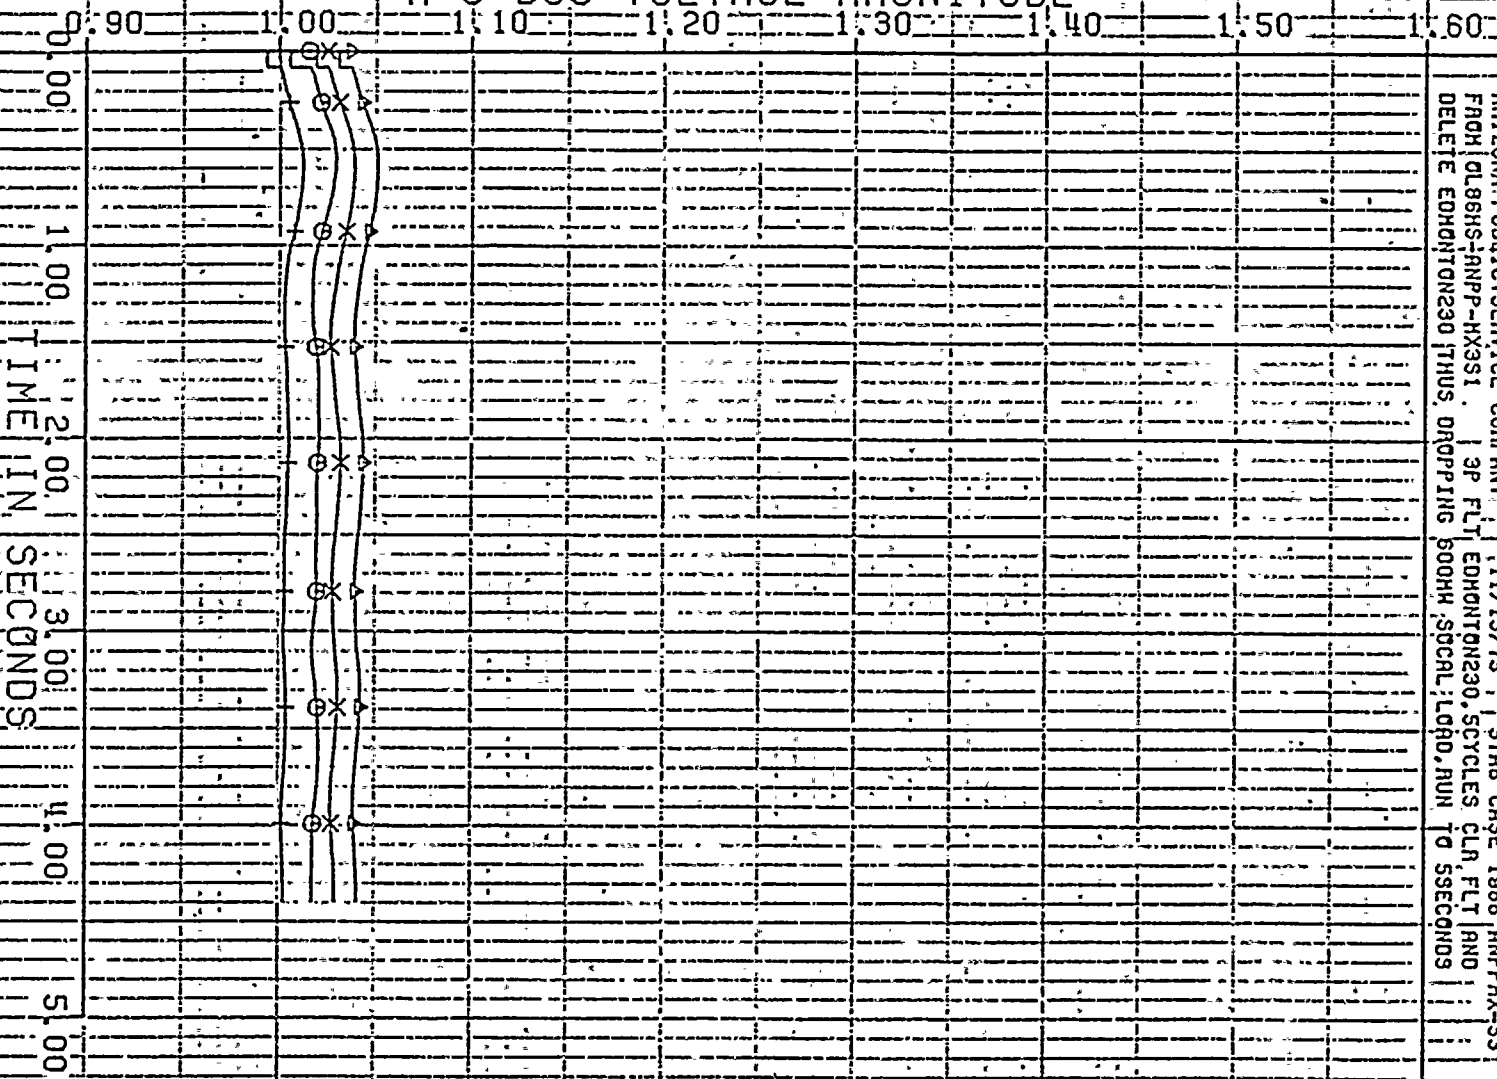 BUS VOLTAGE MAGNITUDE
0.90 1.00 1.10 1.20 1.30 1.40 1.50 1.60
0.00
1.00
2.00
3.00
4.00
5.00
TIME IN SECONDS
STAB CASE
FROM OL86HS-ANPP-HX3S1 . 3P FLT EDMONTON230,5CYCLES CLR FLT AND
DELETE EDMONTON230 THUS DROPPING 600MW SOCAL LOAD,RUN TO 5SECONDS